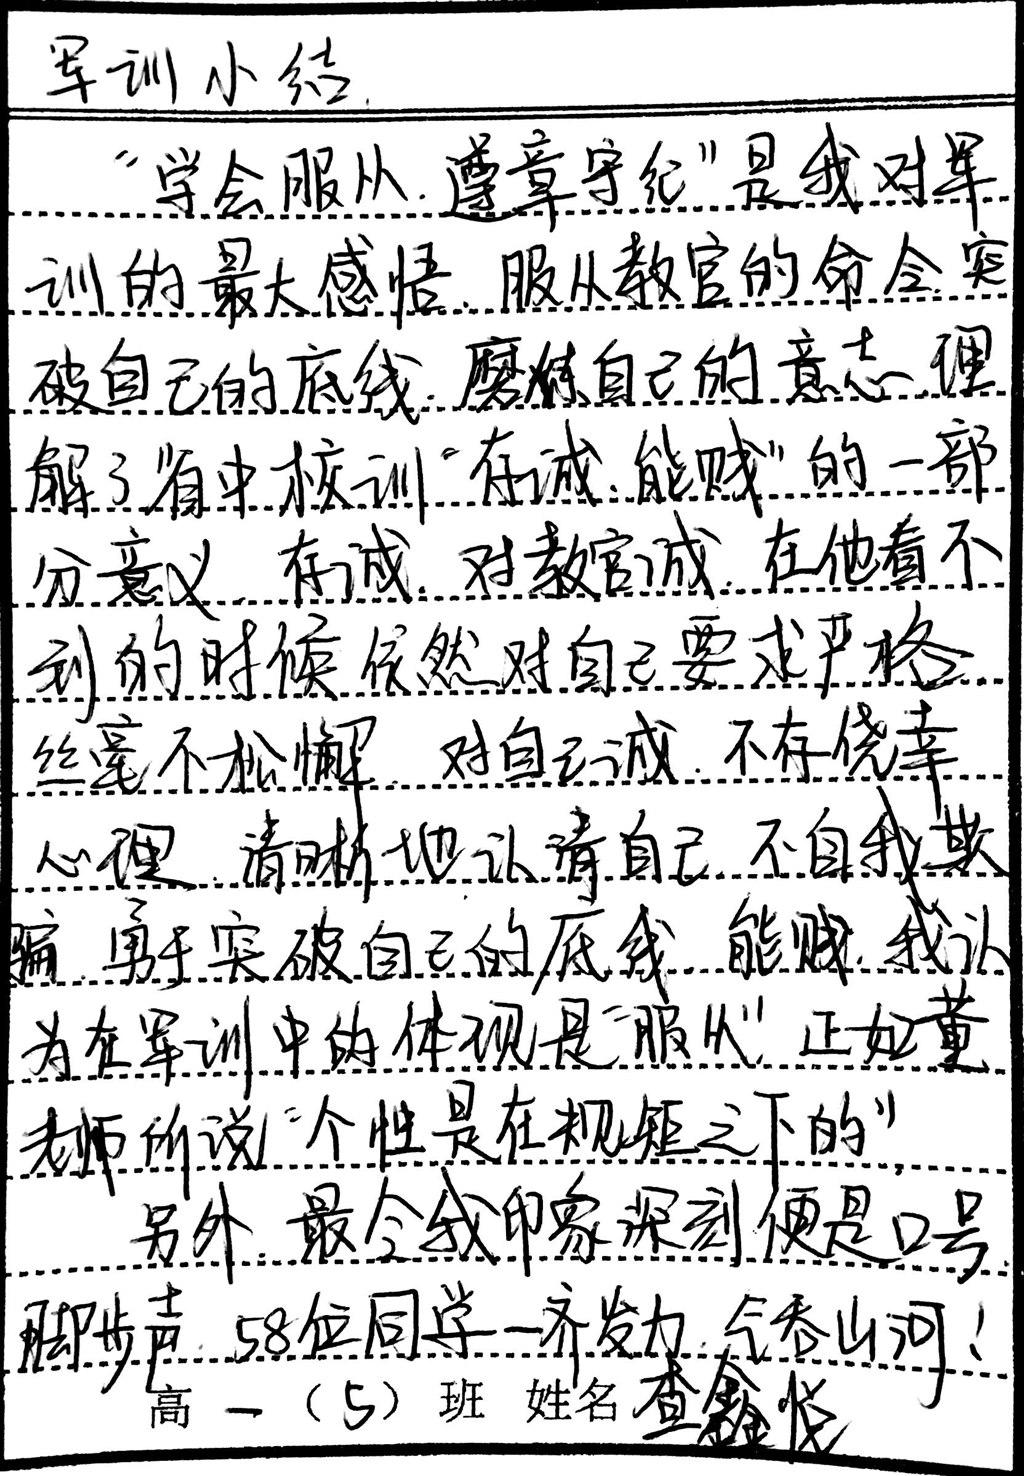 军训小结.
“学会服从.遵章守纪”是我对军
训的最大感悟.服从教官的命令.突
破自己的底线.磨炼自己的意志.理
解了省中校训“存诚.能贱”的一部
分意义.存诚.对教官诚.在他看不
到的时候依然对自己要求严格.
丝毫不松懈.对自己诚.不存侥幸
心理.清晰地认清自己.不自我欺
骗.勇于突破自己的底线.能贱.我认
为在军训中的体现是“服从”.正如黄
老师所说“个性是在规矩之下的”.
另外.最令我印象深刻便是口号.
脚步声.58位同学一齐发力.气吞山河!
高一(5)班 姓名 查鑫悦